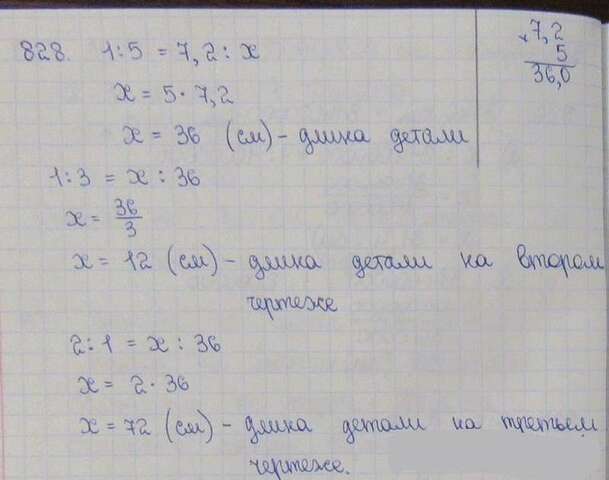 828. 1:5 = 7,2 : x
x = 5 · 7,2
x = 36 (см) - длина детали
× 7,2
5
36,0
1:3 = x : 36
x = 36/3
x = 12 (см) - длина детали на втором
чертеже
2:1 = x : 36
x = 2 · 36
x = 72 (см) - длина детали на третьем
чертеже.